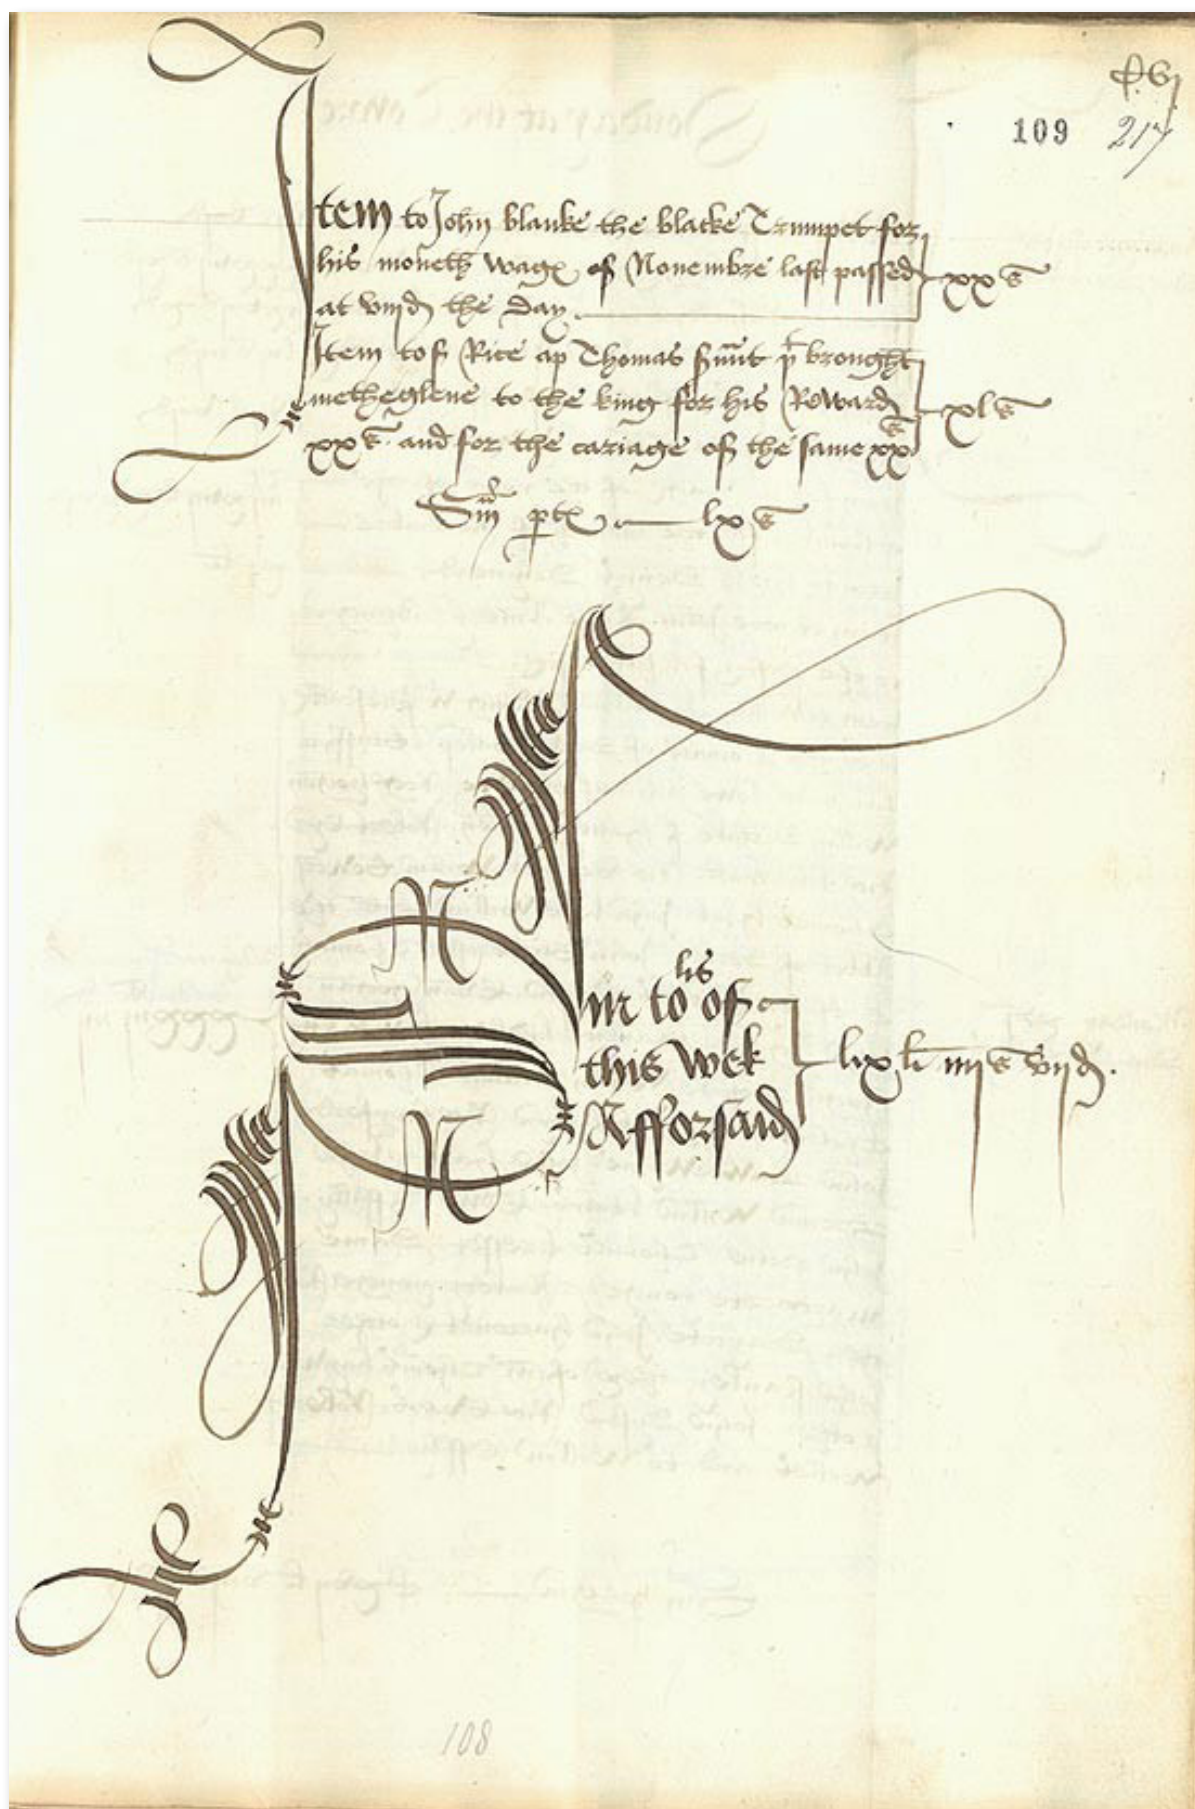 109 217
Item to John blanke the blacke Trumpet for
his moneth wages of Nouembre last passed xx s
at viijd the day
Item to sr Rice ap Thomas sunt yt brought
metheglene to the king for his Reward xl s
xx s and for the cariage of the same xx s
Sma ptes lx s
Sm tolis of
this wek lix li iiij s viijd.
Afforsaid
108